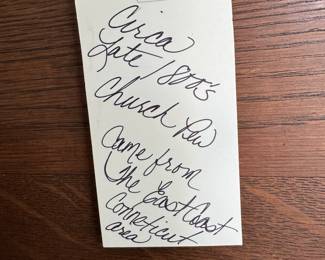 Circa
Late 1800's
Church Pew
Came from
The East Coast
Conneticut
area